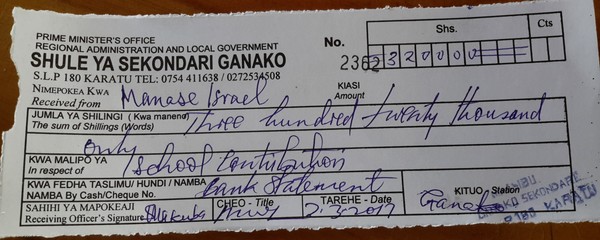 PRIME MINISTER'S OFFICE
REGIONAL ADMINISTRATION AND LOCAL GOVERNMENT
SHULE YA SEKONDARI GANAKO
S.L.P 180 KARATU TEL: 0754 411638 / 0272534508
No. 2362
Shs. Cts
320000
NIMEPOKEA KWA
Received from Manase Israel
KIASI
Amount
JUMLA YA SHILINGI (Kwa maneno)
The sum of Shillings (Words) Three hundred twenty thousand
only
KWA MALIPO YA
In respect of School Contribution
KWA FEDHA TASLIMU/ HUNDI / NAMBA
NAMBA By Cash/Cheque No. Bank Statement
SAHIHI YA MAPOKEAJI
Receiving Officer's Signature
CHEO - Title
TAREHE - Date
2.3.2017
KITUO - Station
Ganako
SEKONDARI
KARATU